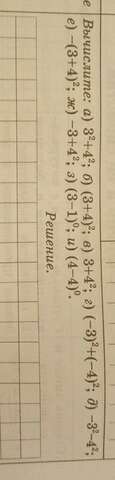 е Вычислите: а) 3²+4²; б) (3+4)²; в) 3+4²; г) (−3)²+(−4)²; д) −3²−4²;
е) −(3+4)²; ж) −3+4²; з) (3−1)⁰; и) (4−4)⁰.
Решение.